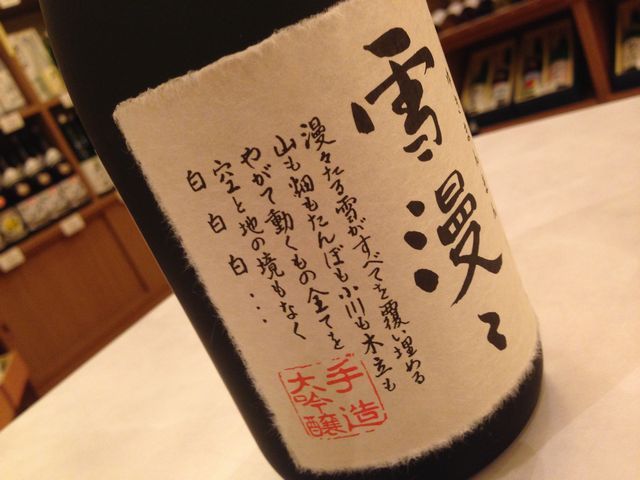 雪漫々
漫々たる雪がすべてを覆い埋める
山も畑もたんぼも小川も木立も
やがて動くもの全てを
空と地の境もなく
白 白 白…
手造
大吟醸